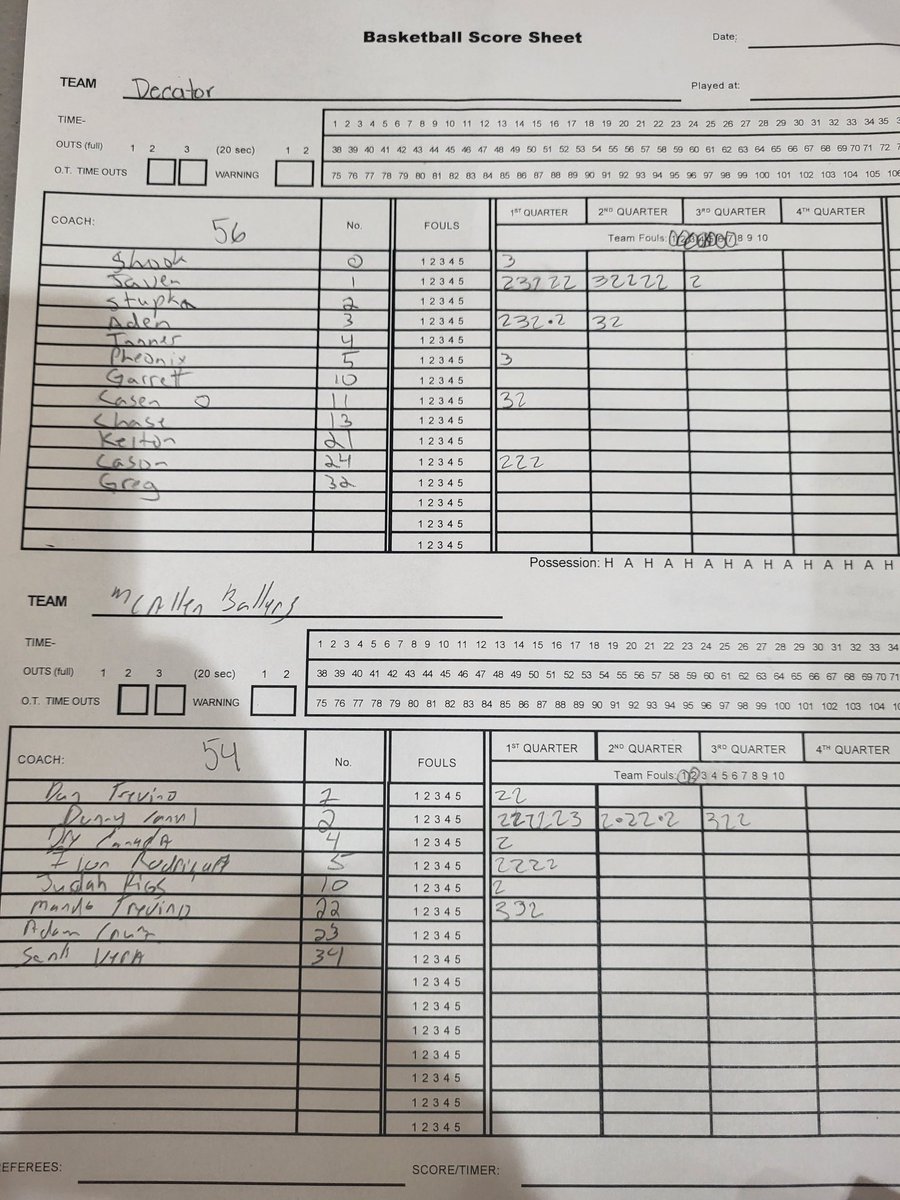 Basketball Score Sheet
Date:
TEAM Decator
Played at:
TIME-
1 2 3 4 5 6 7 8 9 10 11 12 13 14 15 16 17 18 19 20 21 22 23 24 25 26 27 28 29 30 31 32 33 34 35
OUTS (full) 1 2 3 (20 sec) 1 2
38 39 40 41 42 43 44 45 46 47 48 49 50 51 52 53 54 55 56 57 58 59 60 61 62 63 64 65 66 67 68 69 70 71 72
O.T. TIME OUTS WARNING
75 76 77 78 79 80 81 82 83 84 85 86 87 88 89 90 91 92 93 94 95 96 97 98 99 100 101 102 103 104 105
COACH: 56 No. FOULS 1ST QUARTER 2ND QUARTER 3RD QUARTER 4TH QUARTER
Team Fouls: 1 2 3 4 5 6 7 8 9 10
Shook 0 1 2 3 4 5 3
Javen 1 1 2 3 4 5 23222 32222 2
Stupka 2 1 2 3 4 5
Aden 3 1 2 3 4 5 232•2 32
Tanner 4 1 2 3 4 5
Pheonix 5 1 2 3 4 5 3
Garrett 10 1 2 3 4 5
Casen O 11 1 2 3 4 5 32
Chase 13 1 2 3 4 5
Kelton 21 1 2 3 4 5
Cason 24 1 2 3 4 5 222
Greg 32 1 2 3 4 5
1 2 3 4 5
1 2 3 4 5
1 2 3 4 5
Possession: H A H A H A H A H A H A H A H
TEAM McAllen Ballers
TIME-
1 2 3 4 5 6 7 8 9 10 11 12 13 14 15 16 17 18 19 20 21 22 23 24 25 26 27 28 29 30 31 32 33 34
OUTS (full) 1 2 3 (20 sec) 1 2
38 39 40 41 42 43 44 45 46 47 48 49 50 51 52 53 54 55 56 57 58 59 60 61 62 63 64 65 66 67 68 69 70 71
O.T. TIME OUTS WARNING
75 76 77 78 79 80 81 82 83 84 85 86 87 88 89 90 91 92 93 94 95 96 97 98 99 100 101 102 103 104
COACH: 54 No. FOULS 1ST QUARTER 2ND QUARTER 3RD QUARTER 4TH QUARTER
Team Fouls: 1 2 3 4 5 6 7 8 9 10
Trevino 1 2 3 4 5 22
Danny 2 1 2 3 4 5 2•22•2 322
4 1 2 3 4 5 2
5 1 2 3 4 5 2222
Judah Rios 10 1 2 3 4 5 2
Mando Trevino 22 1 2 3 4 5 332
Adam 23 1 2 3 4 5
34 1 2 3 4 5
1 2 3 4 5
1 2 3 4 5
1 2 3 4 5
1 2 3 4 5
1 2 3 4 5
1 2 3 4 5
1 2 3 4 5
REFEREES: SCORE/TIMER: